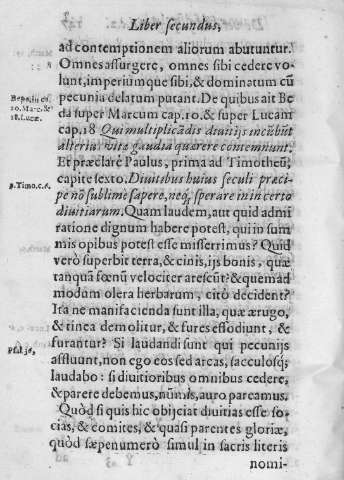 Liber secundus,
ad contemptionem aliorum abutuntur.
8 Omnes assurgere, omnes sibi cedere vo-
lunt, imperiumque sibi, & dominatum cū
pecunia delatum putant. De quibus ait Be
Beda, in ca.
10. Marc. &
18. Lucæ.
da super Marcum cap. 10. & super Lucam
cap. 18 Qui multiplicādis divitijs incūbūt
alteriꝰ vitæ gaudia quærere contemnunt.
Et præclarè Paulus, prima ad Timotheū,
1. Timo. c. 6.
capite sexto. Divitibus huius seculi præci-
pe nō sublime sapere, neq; sperare in incerto
divitiarum. Quam laudem, aut quid admi
ratione dignum habere potest, qui in sum
mis opibus potest esse miserrimus? Quid
verò superbit terra, & cinis, ijs bonis, quæ
tanquā fœnū velociter arescūt? & quemad
modum olera herbarum, citò decident?
Ista ne manifacienda sunt illa, quæ ærugo,
& tinea demolitur, & fures effodiunt, &
furantur? Si laudandi sunt qui pecunijs
Psal. 36,
affluunt, non ego eos sed arcas, sacculosq;
laudabo: si divitioribus omnibus cedere,
& parere debemus, nūmis, auro pareamus.
Quòd si quis hic obijciat divitias esse so-
cias, & comites, & quasi parentes gloriæ,
quòd sæpenumerò simul in sacris literis
nomi-